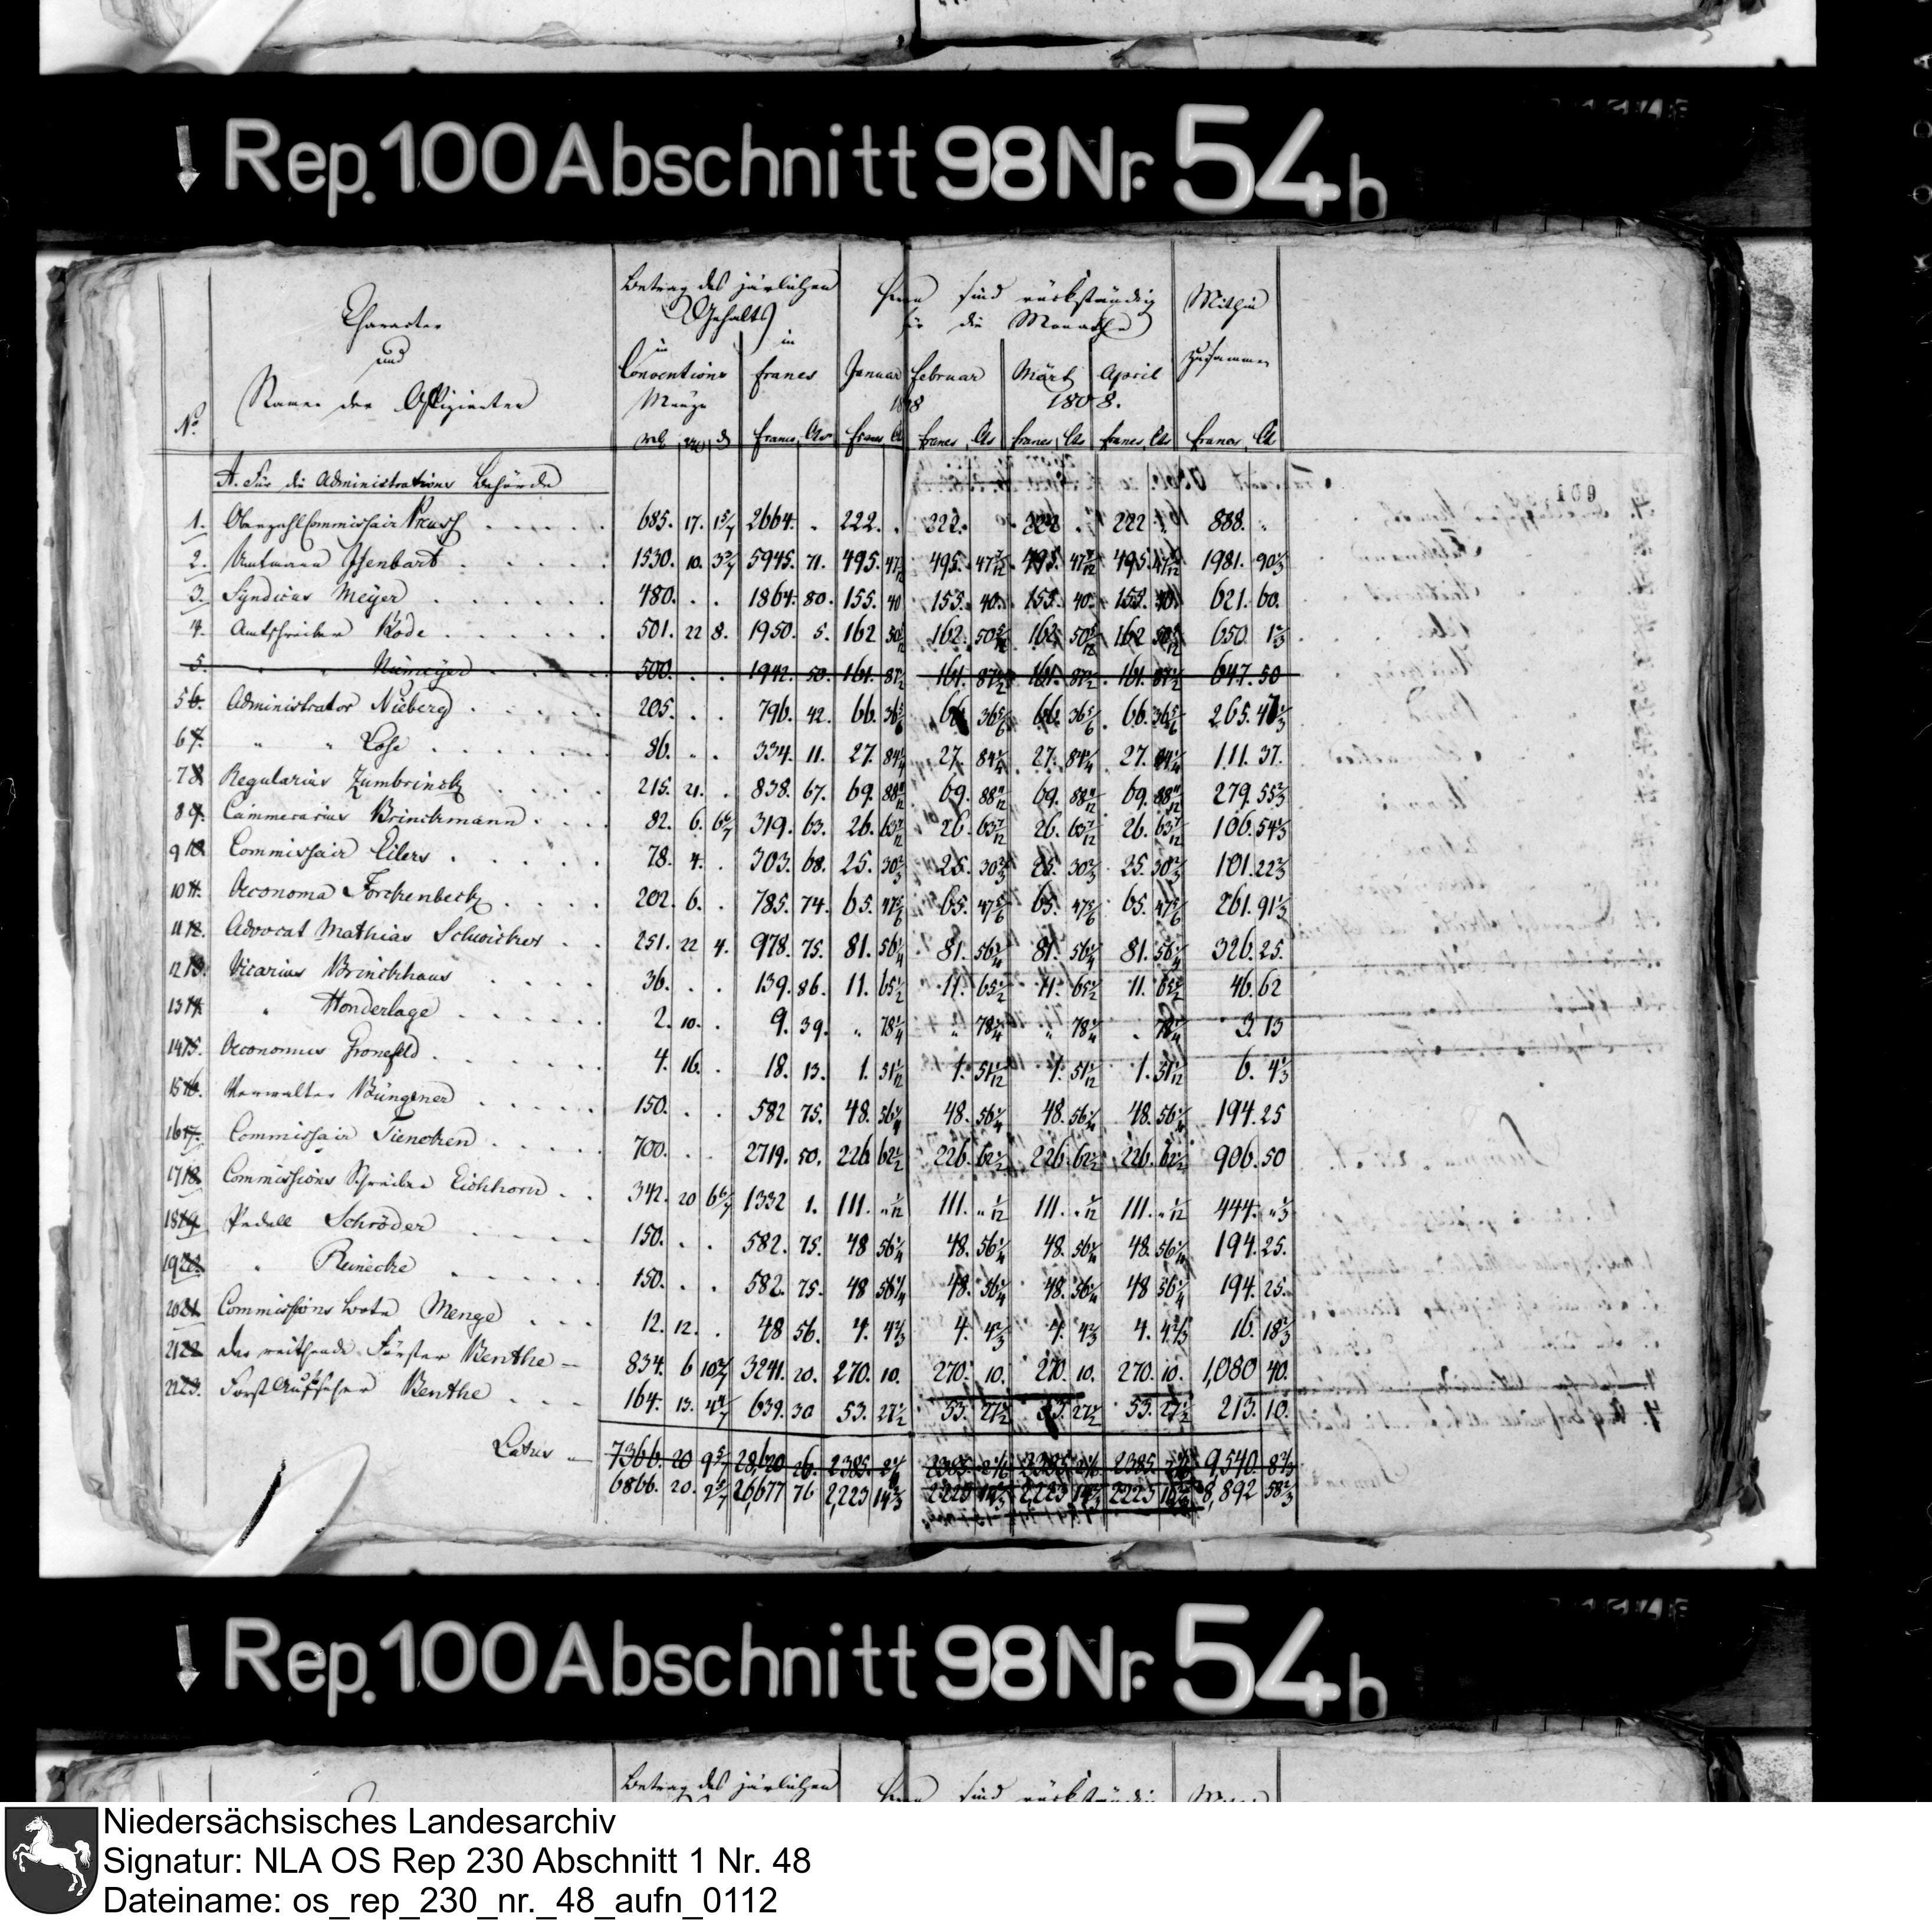 ↓ Rep. 100 Abschnitt 98 Nr. 54b
Character
und
Namen der Offizianten
Betrag des järlichen
Gehalts
in
Conventions
Münze
in
francs
sind rückständig
für die Monathe
Januar
Februar
Märtz
April
1808
1808.
Mithin
zusammen
No.
francs
francs
francs
francs
francs
A. Für die Administrations Behörde
1. Preusch 685. 17. 1 5/7 2664. 222. 222. 222 222 888.
2. Amtmann Isenbart 1530. 10. 3 3/7 5945. 71. 495. 47 7/12 495. 47 7/12 495. 47 7/12 495. 47 7/12 1981. 90 1/3
3. Syndicus Meyer 480. 1864. 80. 155. 40 155. 40. 155. 40. 155. 40. 621. 60.
4. Amtschreiber Bode 501. 22 8. 1950. 5. 162 50 5/12 162. 50 5/12 162. 50 5/12 162 50 5/12 650 1 2/3
5. " " Niemeyer 500. 1942. 50. 161. 87 1/2 161. 87 1/2 161. 87 1/2 161. 87 1/2 647. 50
5 6. Administrator Nieberg 205. 796. 42. 66. 36 5/6 66. 36 5/6 66. 36 5/6 66. 36 5/6 265. 47 1/3
6 7. " " Lose 86. 334. 11. 27. 84 1/4 27. 84 1/4 27. 84 1/4 27. 84 1/4 111. 37.
7 8 Regularius Zumbrinck 215. 21. 838. 67. 69. 88 11/12 69. 88 11/12 69. 88 11/12 69. 88 11/12 279. 55 2/3
8 9. Cammerarius Brinckmann 82. 6. 6 6/7 319. 63. 26. 63 7/12 26. 63 7/12 26. 63 7/12 26. 63 7/12 106. 54 1/3
9 10. Commissair Eilers 78. 4. 303. 68. 25. 30 2/3 25. 30 2/3 25. 30 2/3 25. 30 2/3 101. 22 2/3
10 11. Oeconoma Forckenbeck 202. 6. 785. 74. 65. 47 5/6 65. 47 5/6 65. 47 5/6 65. 47 5/6 261. 91 1/3
11 12. Advocat Mathias Schwicker 251. 22 4. 978. 75. 81. 56 1/4 81. 56 1/4 81. 56 1/4 81. 56 1/4 326. 25.
12 13. Vicarius Brinckhaus 36. 139. 86. 11. 65 1/2 11. 65 1/2 11. 65 1/2 11. 65 1/2 46. 62
13 14. " Honderlage 2. 10. 9. 39. " 78 1/4 " 78 1/4 " 78 1/4 " 78 1/4 3. 13
14 15. Oeconomus Gronefeld 4. 16. 18. 13. 1. 51 1/12 1. 51 1/12 1. 51 1/12 1. 51 1/12 6. 4 1/3
15 16. Verwalter Büngener 150. 582 75. 48. 56 1/4 48. 56 1/4 48. 56 1/4 48. 56 1/4 194. 25
16 17. Commissair Tiencken 700. 2719. 50. 226 62 1/2 226. 62 1/2 226. 62 1/2 226. 62 1/2 906. 50
17 18. Commissions Schreiber Eichhorn 342. 20 6 6/7 1332 1. 111. " 1/12 111. " 1/12 111. " 1/12 111. " 1/12 444. " 1/3
18 19. Pedell Schröder 150. 582. 75. 48 56 1/4 48. 56 1/4 48. 56 1/4 48. 56 1/4 194. 25.
19 20. " Reinecke 150. 582. 75. 48 56 1/4 48. 56 1/4 48. 56 1/4 48 56 1/4 194. 25.
20 21. Commissions bote Menge 12. 12. 48 56. 4. 4 2/3 4. 4 2/3 4. 4 2/3 4. 4 2/3 16. 18 2/3
21 22 Der reithende Förster Benthe 834. 6 10 2/7 3241. 20. 270. 10. 270. 10. 270. 10. 270. 10. 1,080 40.
22 23. Forst Aufseher Benthe 164. 13. 4 4/7 639. 30 53. 27 1/2 53. 27 1/2 53. 27 1/2 53. 27 1/2 213. 10.
Latus 7366. 20 9 5/7 28,620 26. 2385. 2 1/6 2385. 2 1/6 2385 2 1/6 2385. 2 1/6 9,540. 8 2/3
6866. 20. 2 5/7 26,677 76 2,223 14 2/3 2223 14 2/3 2,223 14 2/3 2223 14 2/3 8,892 58 2/3
109
↓ Rep. 100 Abschnitt 98 Nr. 54b
Betrag des järlichen
sind rückständig
Niedersächsisches Landesarchiv
Signatur: NLA OS Rep 230 Abschnitt 1 Nr. 48
Dateiname: os_rep_230_nr._48_aufn_0112